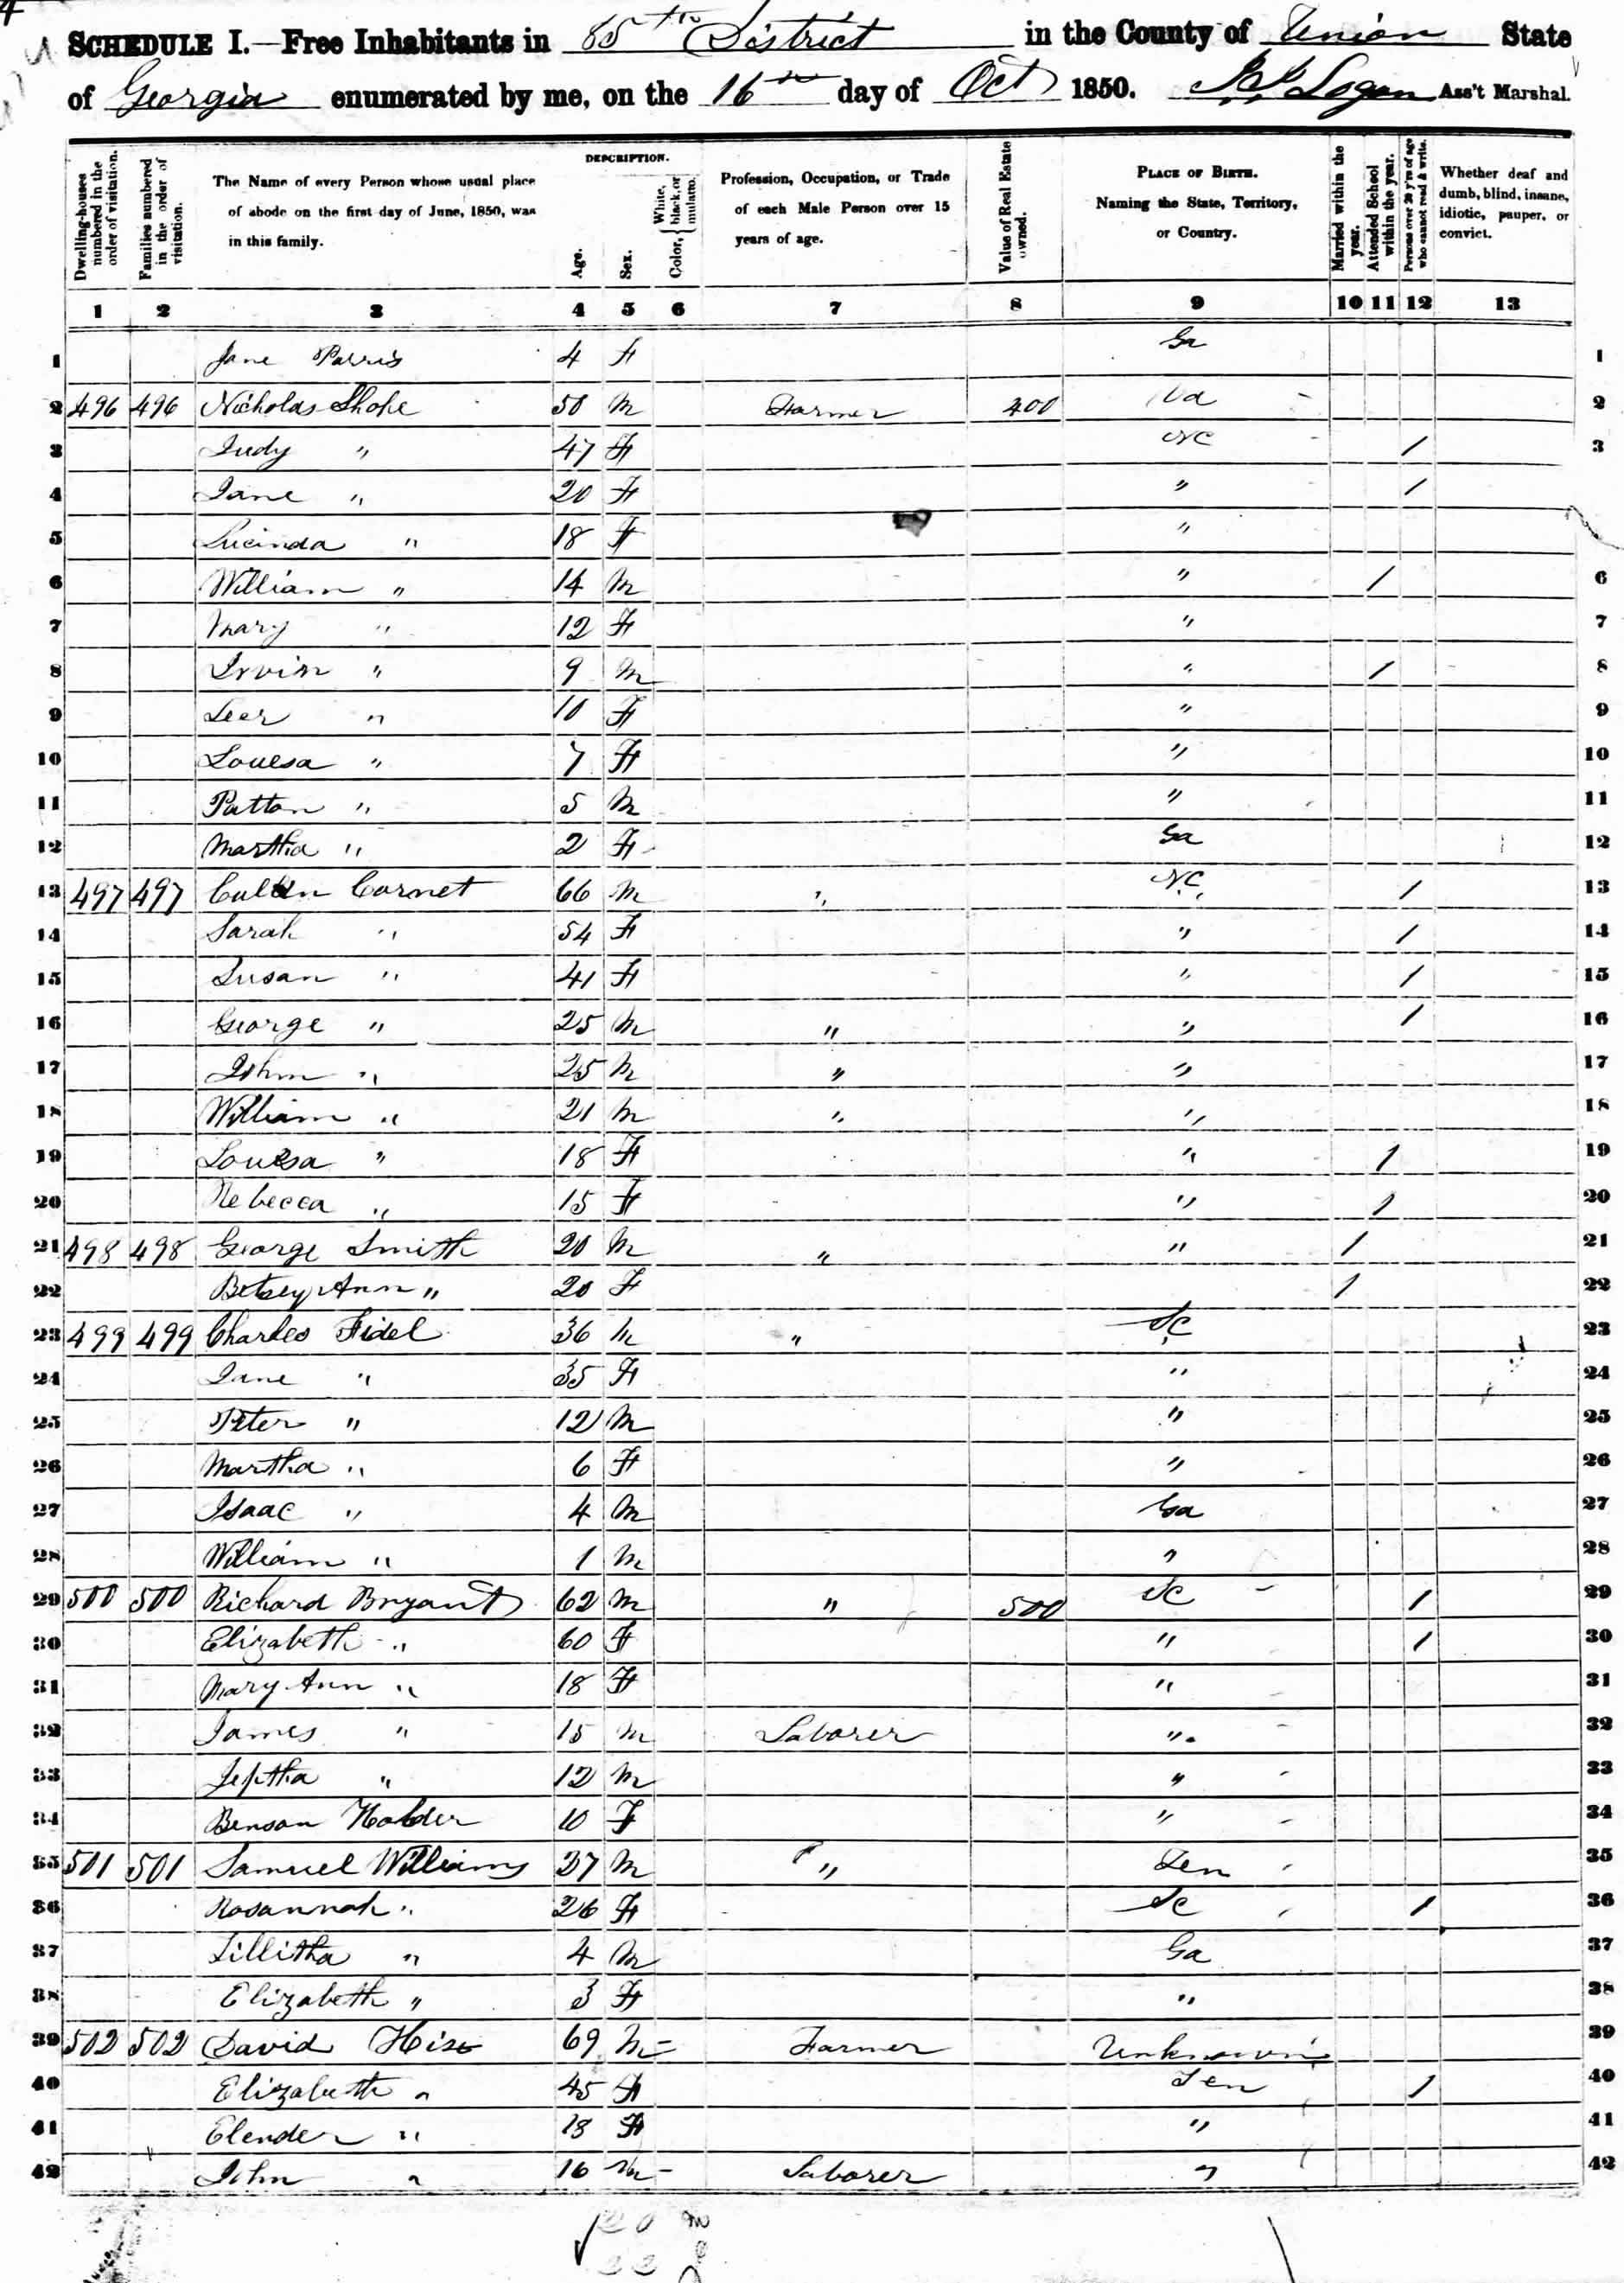 4
SCHEDULE I.—Free Inhabitants in 85th District in the County of Union State
of Georgia enumerated by me, on the 16th day of Oct 1850. Logan Ass't Marshal.
Dwelling-houses numbered in the order of visitation.
Families numbered in the order of visitation.
The Name of every Person whose usual place of abode on the first day of June, 1850, was in this family.
DESCRIPTION.
Age.
Sex.
Color, { White, black, or mulatto.
Profession, Occupation, or Trade of each Male Person over 15 years of age.
Value of Real Estate owned.
PLACE OF BIRTH. Naming the State, Territory, or Country.
Married within the year.
Attended School within the year.
Persons over 20 y'rs of age who cannot read & write.
Whether deaf and dumb, blind, insane, idiotic, pauper, or convict.
1 2 3 4 5 6 7 8 9 10 11 12 13
1 Jane Parris 4 F Ga 1
2 496 496 Nicholas Shope 50 M Farmer 400 Va 2
3 Judy " 47 F NC / 3
4 Jane " 20 F " /
5 Lucinda " 18 F "
6 William " 14 M " / 6
7 Mary " 12 F " 7
8 Irvin " 9 M " / 8
9 Leer " 10 F " 9
10 Louesa " 7 F " 10
11 Patton " 5 M " 11
12 Martha " 2 F Ga 12
13 497 497 Cornet 66 M " NC / 13
14 Sarah " 54 F " / 14
15 Susan " 41 F " / 15
16 George " 25 M " " / 16
17 John " 25 M " " 17
18 William " 21 M " " 18
19 Louesa " 18 F " / 19
20 Rebecca " 15 F " / 20
21 498 498 George Smith 20 M " " / 21
22 Betsey Ann " 20 F / 22
23 499 499 Charles Fidel 36 M " SC 23
24 Jane " 35 F " 24
25 Peter " 12 M " 25
26 Martha " 6 F " 26
27 Isaac " 4 M Ga 27
28 William " 1 M " 28
29 500 500 Richard Bryant 62 M " 500 SC / 29
30 Elizabeth " 60 F " / 30
31 Mary Ann " 18 F " 31
32 James " 15 M Laborer " 32
33 Jeptha " 12 M " 33
34 Benson Holder 10 F " 34
35 501 501 Samuel Williams 27 M " Ten 35
36 Rosannah " 26 F SC / 36
37 Lillitha " 4 M Ga 37
38 Elizabeth " 3 F " 38
39 502 502 David Hise 69 M Farmer Unknown 39
40 Elizabeth " 45 F Ten / 40
41 Elender " 18 F " 41
42 John " 16 M Laborer " 42
20
22